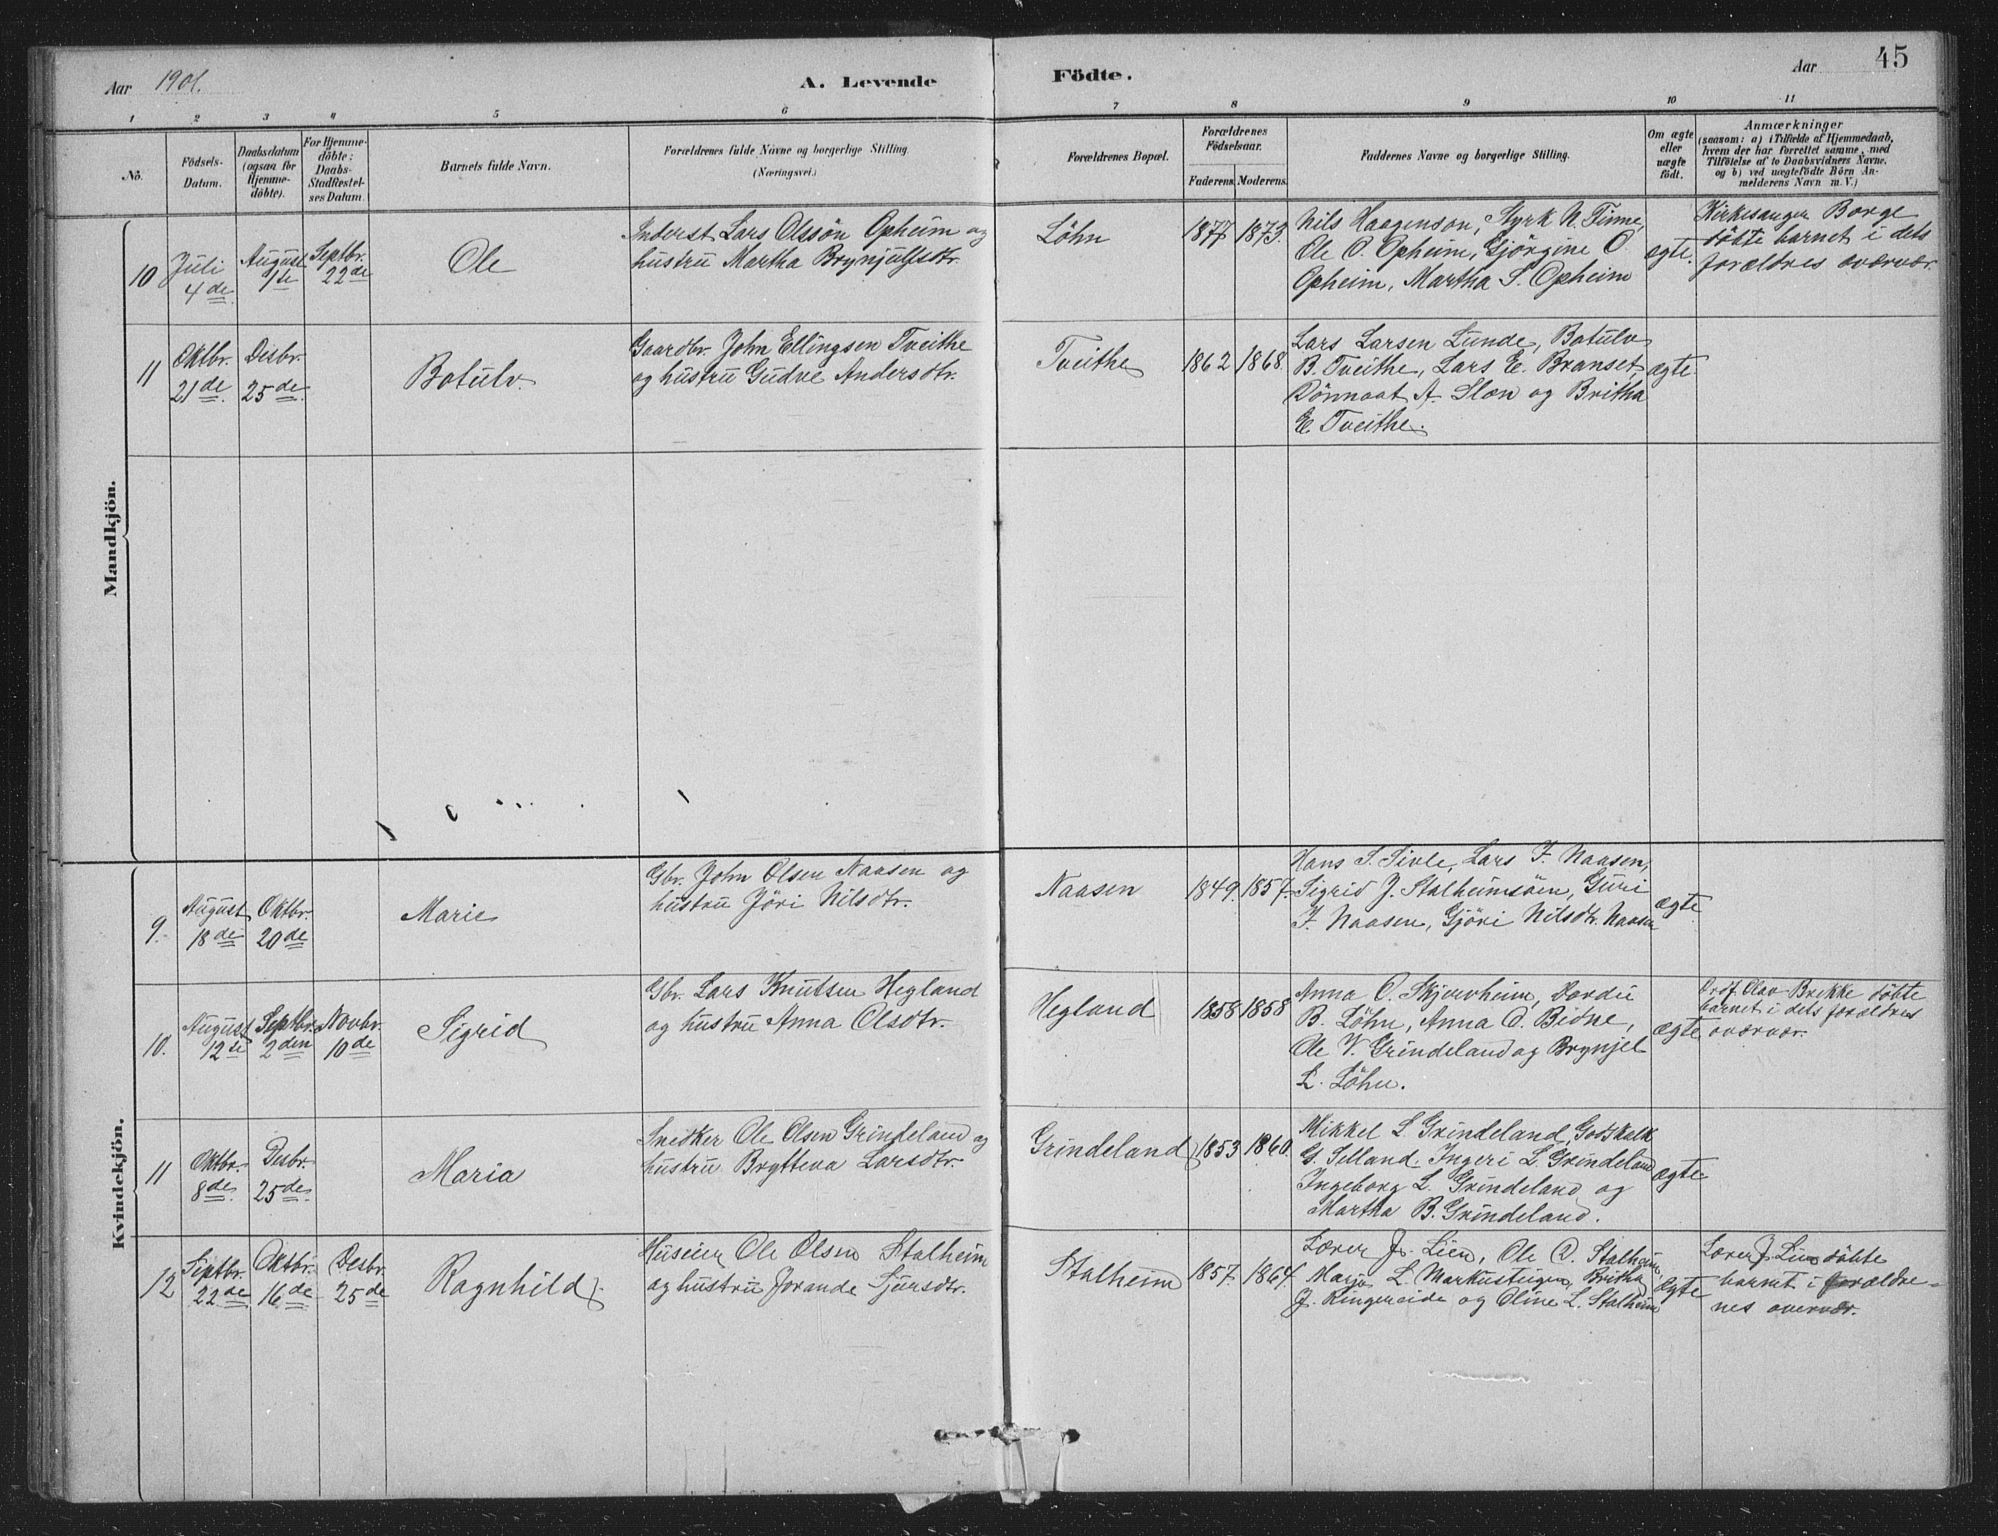 Aar 1901.
A. Levende
Födte.
Aar
45
1 2 3 4 5 6 7 8 9 10 11
No.
Födsels-
Datum.
Daabsdatum
(ogsaa for
Hjemme-
döbte).
For Hjemme-
döbte:
Daabs-
Stadfæstel-
ses Datum.
Barnets fulde Navn.
Forældrenes fulde Navne og borgerlige Stilling.
(Næringsvei.)
Forældrenes Bopæl.
Forældrenes
Födselsaar.
Faderens. Moderens.
Faddernes Navne og borgerlige Stilling.
Om ægte
eller
uægte
födt.
Anmærkninger
(saasom: a) i Tilfælde af Hjemmedaab,
hvem der har forrettet samme, med
Tilföielse af to Daabsvidners Navne,
og b) ved uægtefödte Börn An-
melderens Navn m. V.)
Mandkjön.
10
Juli
4de
August
1ste
Septbr.
22de
Ole
Inderst Lars Olssön Opheim og
hustru Martha Brynjulfsdtr.
Löhn
1877
1873.
Nils Haagenson, Styrk N. Tinne,
Ole O. Opheim, Gjörgine O.
Opheim, Martha S. Opheim
ægte.
Kirkesanger Borge
döbte barnet i dets
forældres overvær.
11
Oktbr.
21de
Desbr.
25de
Botulv
Gaardbr. John Ellingsen Tveithe
og hustru Gudve Andersdtr.
Tveithe
1862
1868.
Lars Larsen Lunde, Botulv
B. Tveithe, Lars E. Branset,
A. Slæn og Britha
E. Tveithe.
ægte.
Kvindekjön.
9.
August
18de
Oktbr.
20de
Marie
Gbr. John Olsen Naasen og
hustru Jöri Nilsdtr.
Naasen
1849.
1857.
Hans S. Sivle, Lars J. Naasen,
Sigrid J. Stalheimsöen, Guri
J. Naasen, Gjöri Nilsdtr. Naasen
ægte
10.
August
12te
Septbr.
2den
Novbr.
10de
Sigrid
Gbr. Lars Knutsen Hegland
og hustru Anna Olsdtr.
Hegland
1858
1858
Anna O. Skjerveheim, Dordei
B. Löhn, Anna O. Bidne,
Ole V. Grindeland og Brynjel
L. Löhn.
ægte
Prof. Olav Brekke döbte
barnet i dets forældres
overvær.
11
Oktbr.
8de
Desbr.
25de
Maria
Snidker Ole Olsen Grindeland og
hustru Brytteva Larsdtr.
Grindeland
1853
1860.
Mikkel L Grindeland, Godskalk
G. Selland. Ingeri L. Grindeland
Ingeborg L. Grindeland og
Martha B. Grindeland.
ægte
12
Septbr.
22de
Oktbr.
16de
Desbr.
25de
Ragnhild
Huseier Ole Olsen Stalheim
og hustru Jorande Sjursdtr.
Stalheim
1857.
1864.
Lærer J. Lien, Ole O. Stalheim,
L. Markusteigen, Britha
J. Ringereide og Oline L. Stalheim
ægte
Lærer J. Lien döbte
barnet i forældre-
nes overvær.